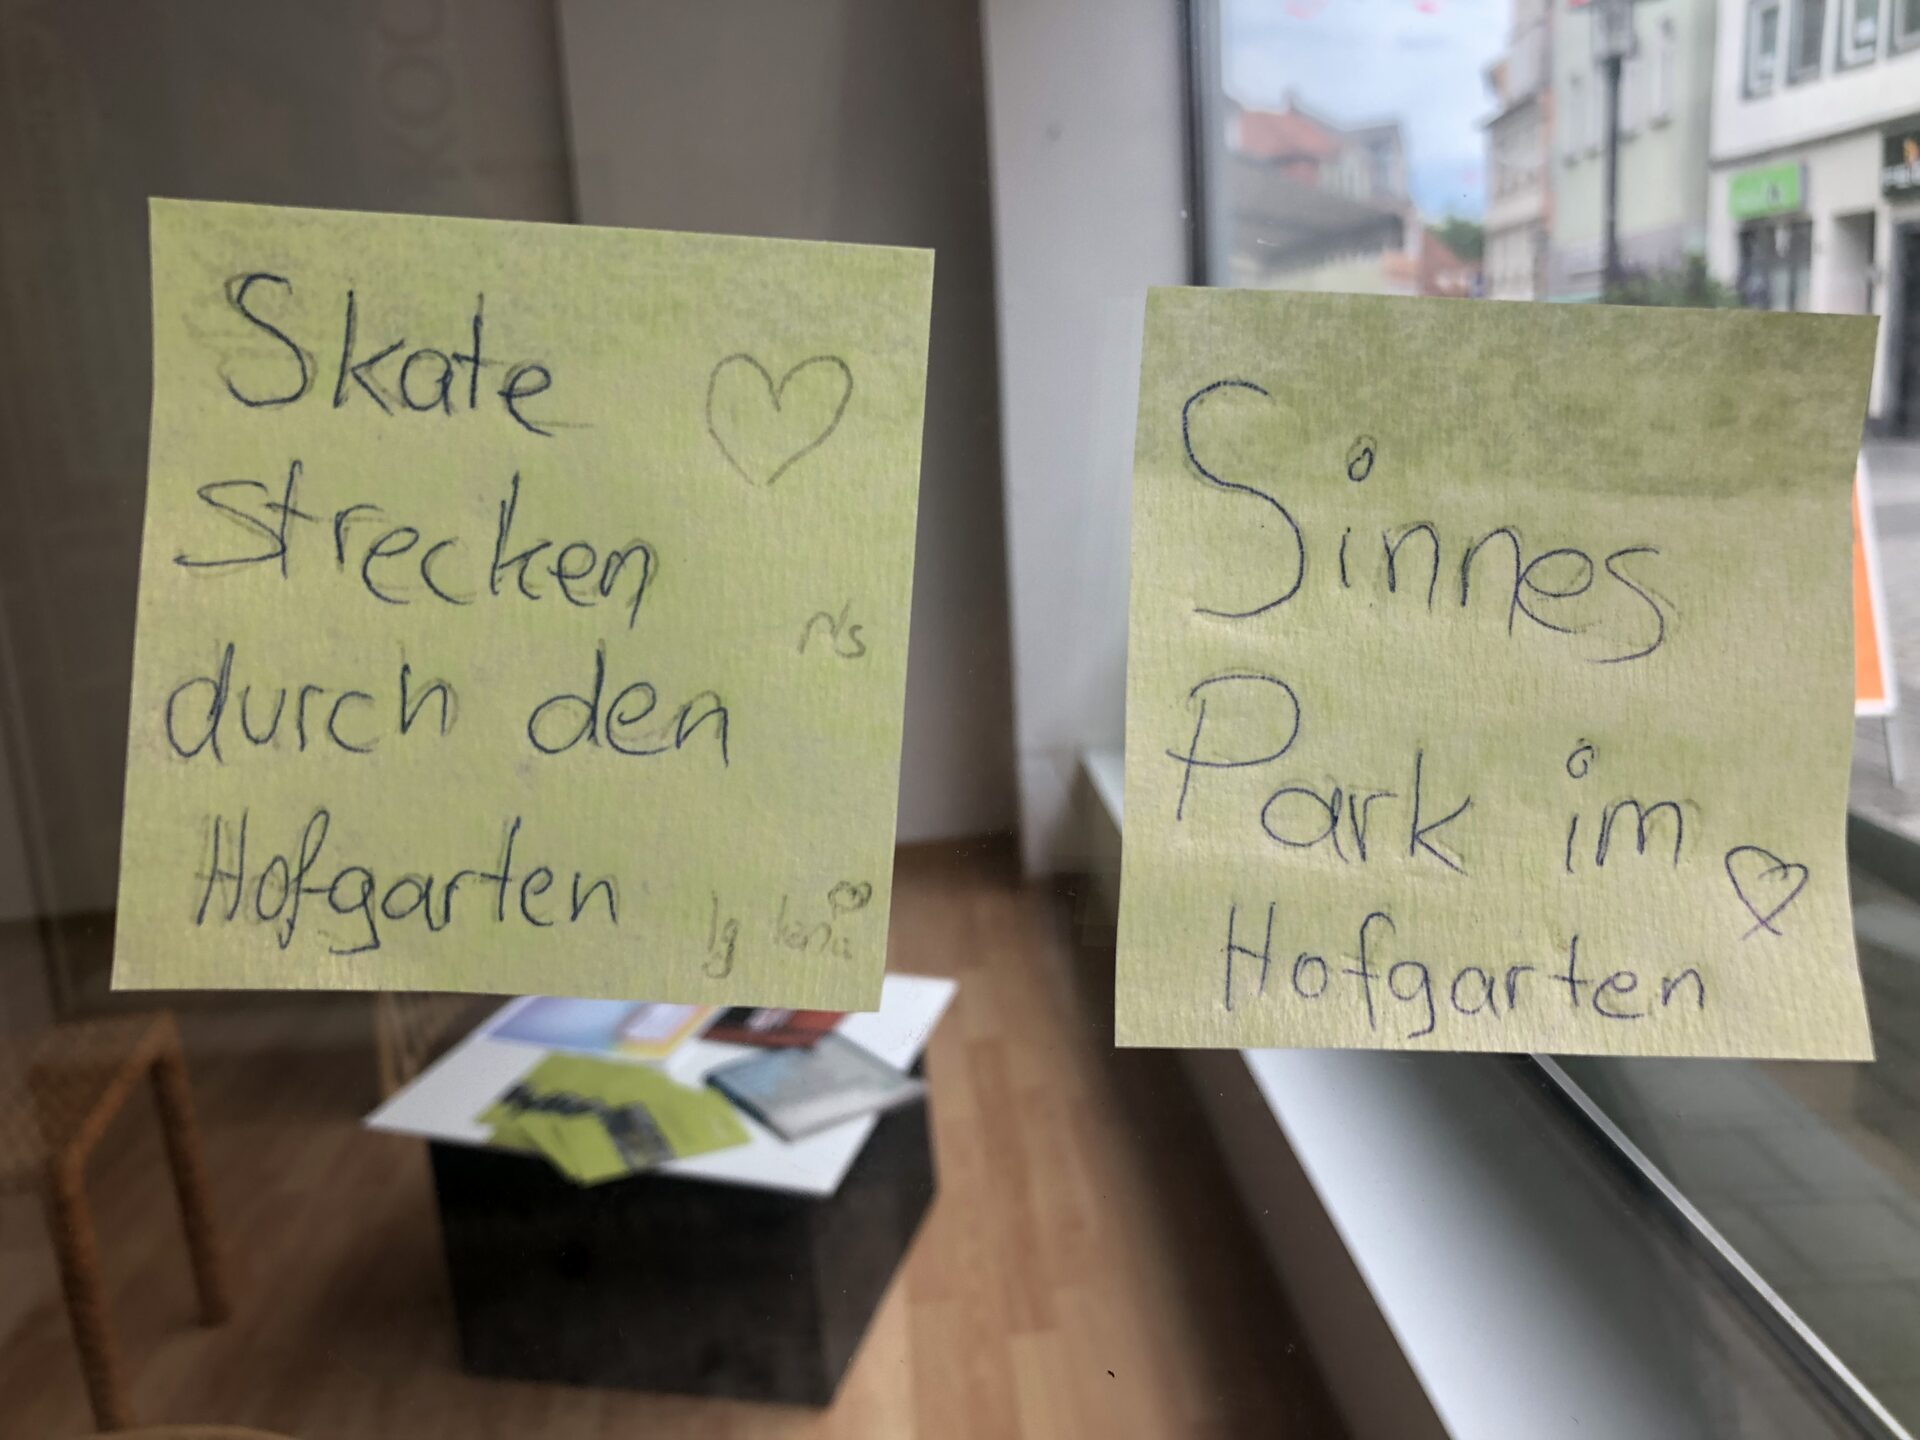 Skate
Strecken
durch den
Hofgarten
Sinnes
Park im
Hofgarten